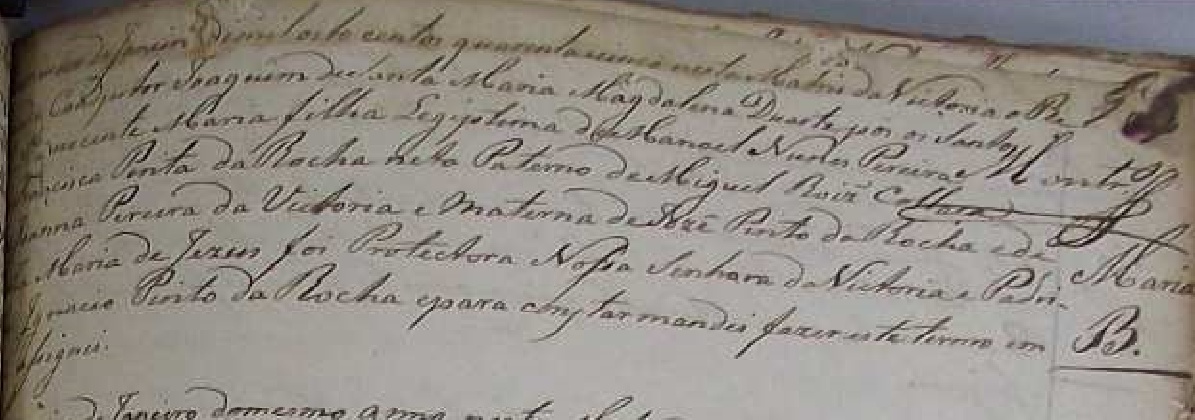 de Janeiro de mil oito centos quarenta e cinco nesta Matriz da Victoria o Re-
Coadjuctor Joaquim de Santa Maria Magdalena Duarte pôs os Santos
innocente Maria filha Legiptima de Manoel Nunes Pereira e
Pinta da Rocha neta Paterno de Miguel Roiz Collaca
Joanna Pereira da Victoria e Materna de José Pinto da Rocha e de
Maria de Jezus foi Protectora Nossa Senhora da Victoria e Padri-
Ignacio Pinto da Rocha e para constar mandei fazer este termo em
assignei.
Maria
B.
de Janeiro do mesmo anno nesta